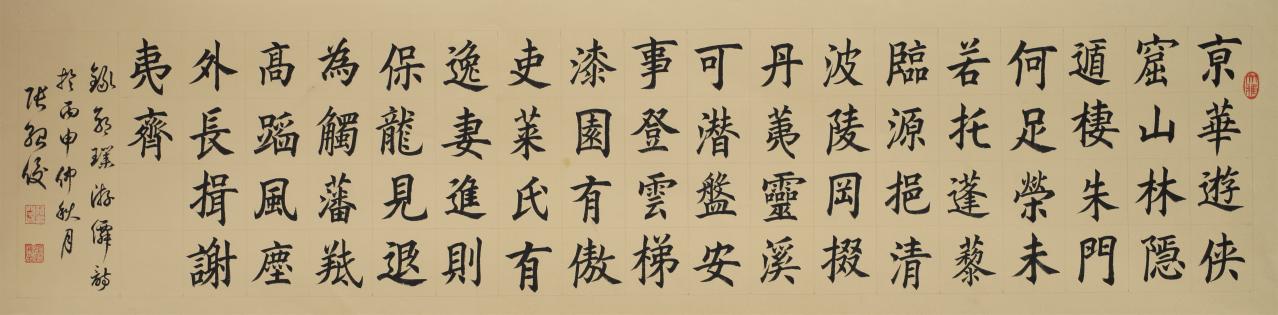 亰華遊侠
窟山林隱
遁棲朱門
何足榮未
若托蓬藜
臨源挹清
波陵岡掇
丹荑靈溪
可潛盤安
事登雲梯
漆園有傲
吏萊氏有
逸妻進則
保龍見退
為觸藩羝
高蹈風塵
外長揖謝
夷齊
錄郭璞游僊詩
於丙申仲秋月
張